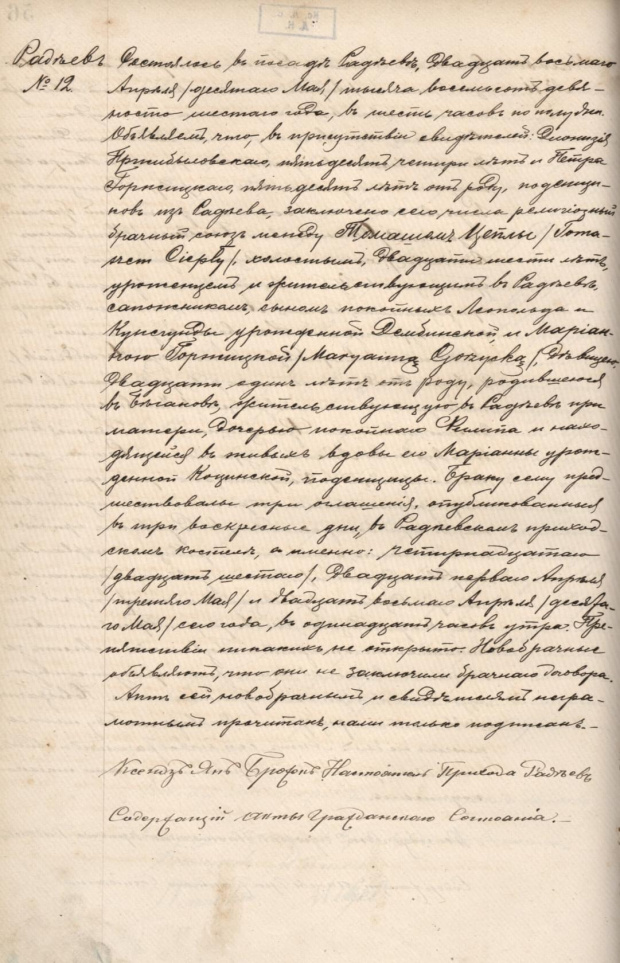 Радѣевъ
№ 12
Состоялось въ посадѣ Радѣевѣ, Двадцать восьмаго
Апрѣля /десятаго Мая/ тысяча восемьсотъ девя-
носто шестаго года, въ шесть часовъ по полудни.
Объявляемъ, что, въ присутствіи свидѣтелей: Діонизія
Пржибыловскаго, пятьдесятъ четыри лѣтъ и Петра
пятьдесятъ лѣтъ отъ роду, поденщи-
ковъ изъ Радѣева, заключено сего числа религіозный
брачный союзъ между Томашемъ Цеплы /Toma-
szem Ciepły/, холостымъ, Двадцати шести лѣтъ,
урожеццемъ и жительствующимъ въ Радѣевѣ,
сапожникомъ, сыномъ покойныхъ Леопольда и
Кунегунды урожденной Дембинской, и Маріан-
ною /Maryanną, дѣвицею,
Двадцати одинъ лѣтъ отъ роду, родившеюся
въ жительствующую въ Радѣевѣ при
матери, Дочерью покойнаго Филипа и нахо-
дящейся въ живыхъ вдовы его Маріанны урож-
денной Коцинской, поденщицы. Браку сему пред-
шествовали три оглашенія, опубликованныя
въ три воскресные дни, въ Радѣевскомъ приход-
скомъ костелѣ, а именно: четырнадцатаго
/двадцать шестаго/, Двадцать перваго Апрѣля
/третяго Мая/ и двадцать восьмаго Апрѣля /десята-
го Мая/ сего года, въ одинадцать часовъ утра. Пре-
пятствій никакихъ не открыто. Новобрачные
объявляютъ, что они не заключили брачнаго договора.
Актъ сей новобрачнымъ и свидѣтелямъ негра-
мотнымъ прочитанъ, нами только подписанъ.-
Ксендзъ Янъ Настоятель Прихода Радѣевъ
Содержащій Акты Гражданскаго Состоянія.-